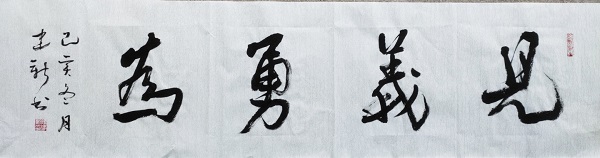 見義勇為
己亥冬月
建新书